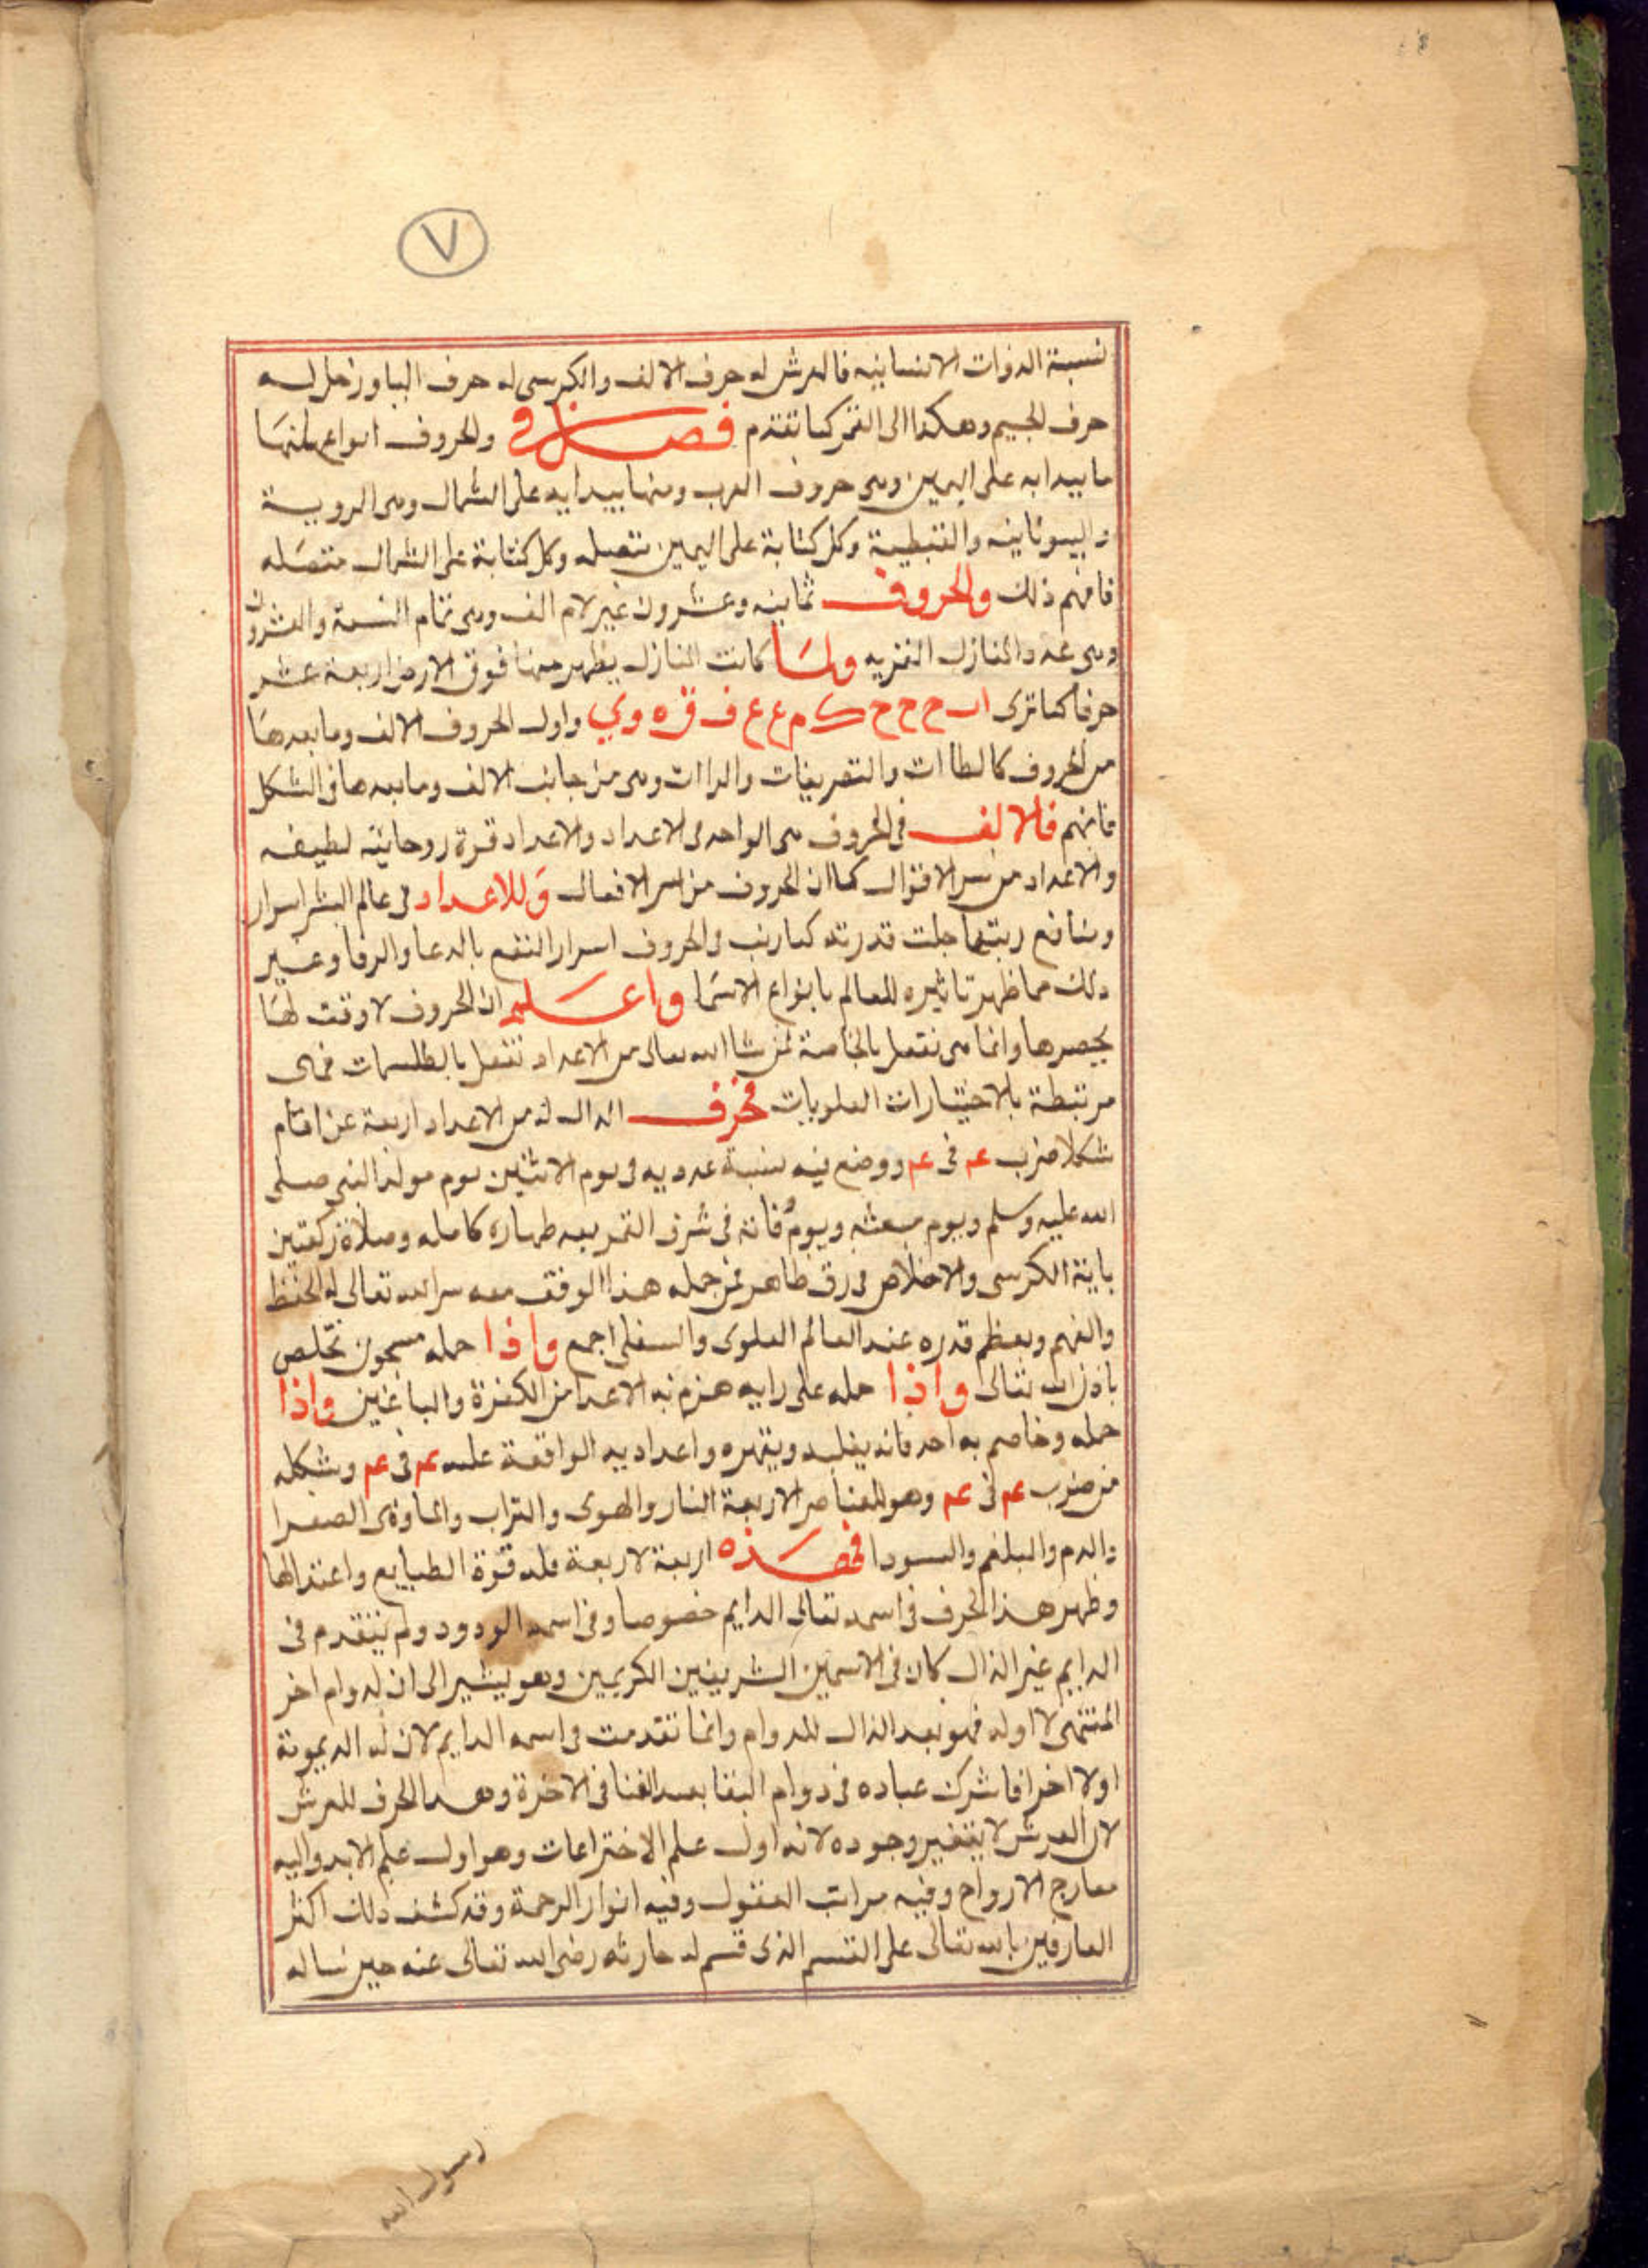 ٧
نسبة الذوات الانسانيه فالعرش له حرف الالف والكرسى له حرف البا وزحل له
حرف الجيم وهكذا الى القمر كما تقدم فصل فى والحروف انواع منها
ما يبدا به على اليمين وهى حروف العرب ومنها يبدا به على الشمال وهى الروميية
واليونانيه والقبطية وكل كتابة على اليمين متصله وكل كتابة على الشمال منفصله
فافهم ذلك والحروف ثمانيه وعشرون غير لام الف وهى تمام التسعة والعشرون
وهى عدد المنازل القمريه ولما كانت المنازل يظهر منها فوق الارض اربعة عشر
حرفا كما ترى اب ح ح ح ك م ع ع ف ق ه و ي واول الحروف الالف وما بعدها
من الحروف كالطاات والتعريفات والراات وهى من جانب الالف وما بعدها فى الشكل
فافهم فالالف فى الحروف هى الواحد فى الاعداد والاعداد قوة روحانية لطيفه
والاعداد من سر الاقوال كما ان الحروف من سر الافعال وللاعداد فى عالم البشر اسرار
ومنافع رتبها جلت قدرته كما رتب فى الحروف اسرار النفع بالدعا والرقا وغير
ذلك مما ظهر تاثيره للعالم بانواع الاسما واعلم ان الحروف لا وقت لها
يحصرها وانما هى تفعل بالخاصة لمن شا الله تعالى من الاعداد تفعل بالطلسمات فهى
مرتبطة بالاختيارات العلويات فحرف الدال له من الاعداد اربعة عن اقام
شكلا ضرب عم فى عم ووضع فيه نسبة عدديه فى يوم الاثنين يوم مولد النبى صلى
الله عليه وسلم ويوم مبعثه ويوم وفاته فى شرف القمر بعد طهاره كامله وصلاة ركعتين
باية الكرسى والاخلاص فى رق طاهر فمن حمله هذا الوفق معه سر الله تعالى له الحفظ
والفهم ويعظم قدره عند العالم العلوى والسفلى اجمع واذا حمله مسجون تخلص
باذن الله تعالى واذا حمله على رايه هزم به الاعدا من الكفرة والباغين واذا
حمله وخاصم به احد فانه يغلبه ويقهره واعداديه الواقعة عليه عم فى عم وشكله
من ضرب عم فى عم وهو للعناصر الاربعة النار والهوى والتراب والماء وهى الصفرا
والدم والبلغم والسودا فهذه اربعة لاربعة فله قوة الطبايع واعتدالها
وظهر هذا الحرف فى اسمه تعالى الدايم خصوصا وفى اسمه الودود ولم يتقدم فى
الدايم غير الدال كان فى الاسمين الشريفين الكريمين وهو يشير الى ان له دوام اخر
المنتهى لا اوله فهو بعد الدال للدوام وانما تقدمت فى اسمه الدايم لان له الديمومة
اولا اخرا فاشرك عباده فى دوام البقا بعد الفنا فى الاخرة وهذا الحرف للعرش
لان العرش لا يتغير وجوده لانه اول علم الاختراعات وهو اول علم الابد واليه
معارج الارواح وفيه مراتب العقول وفيه انوار الرحمة وقد كشف ذلك اكثر
العارفين بالله تعالى على القسم الذى قسم له حارثه رضى الله تعالى عنه حين ساله
رسول الله